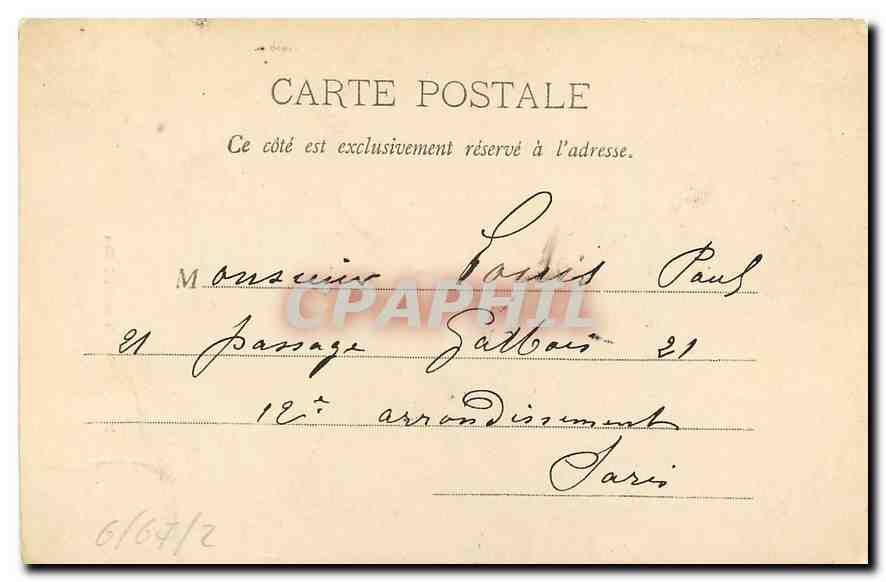 CARTE POSTALE
Ce côté est exclusivement réservé à l'adresse.
Monsieur Louis Paul
CPAPHIL
21 passage Gatbois 21
12e arrondissement
Paris
6/67/2